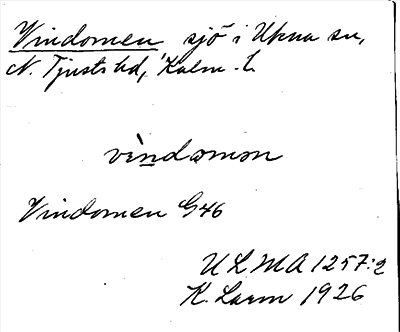 Vindomen sjö i Ukna sn,
N. Tjusts hd, Kalm. L.
vin̲domən
Vindomen G46
ULMA 1257:2
K. Larm 1926